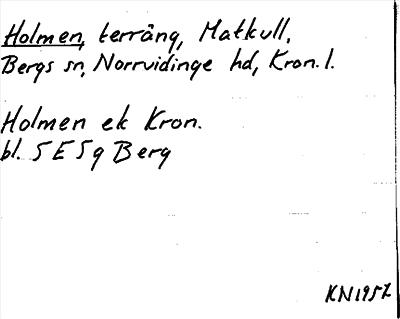 Holmen, terräng, Matkull,
Bergs sn, Norrvidinge hd, Kron. l.
Holmen ek Kron.
bl. 5 E 5 g Berg
KN 1957